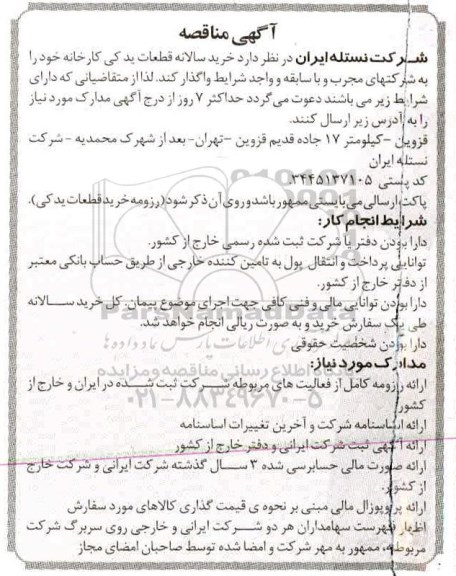 آگهی مناقصه
شرکت نستله ایران در نظر دارد خرید سالانه قطعات یدکی کارخانه خود را
به شرکتهای مجرب و با سابقه و واجد شرایط واگذار کند. لذا از متقاضیانی که دارای
شرایط زیر می باشند دعوت می گردد حداکثر ۷ روز از درج آگهی مدارک مورد نیاز
را به آدرس زیر ارسال کنند.
قزوین –کیلومتر ۱۷ جاده قدیم قزوین –تهران- بعد از شهرک محمدیه - شرکت
نستله ایران
کد پستی ۳۴۴۵۱۳۷۱۰۵
پاکت ارسالی می بایستی ممهور باشد و روی آن ذکر شود (رزومه خرید قطعات یدکی).
شرایط انجام کار:
دارا بودن دفتر یا شرکت ثبت شده رسمی خارج از کشور.
توانایی پرداخت و انتقال پول به تامین کننده خارجی از طریق حساب بانکی معتبر
از دفتر خارج از کشور.
دارا بودن توانایی مالی و فنی کافی جهت اجرای موضوع پیمان. کل خرید سالانه
طی یک سفارش خرید و به صورت ریالی انجام خواهد شد.
ParsNamadData
دارا بودن شخصیت حقوقی
مدارک مورد نیاز:
پایگاه اطلاع رسانی مناقصه و مزایده
ارائه رزومه کامل از فعالیت های مربوطه شرکت ثبت شده در ایران و خارج از
کشور
۰۲۱-۸۸۳۴۹۶۷۰-۵
ارائه اساسنامه شرکت و آخرین تغییرات اساسنامه
ارائه آگهی ثبت شرکت ایرانی و دفتر خارج از کشور
ارائه صورت مالی حسابرسی شده ۳ سال گذشته شرکت ایرانی و شرکت خارج
از کشور
ارائه پروپوزال مالی مبنی بر نحوه ی قیمت گذاری کالاهای مورد سفارش
اظهار فهرست سهامداران هر دو شرکت ایرانی و خارجی روی سربرگ شرکت
مربوطه، ممهور به مهر شرکت و امضا شده توسط صاحبان امضای مجاز